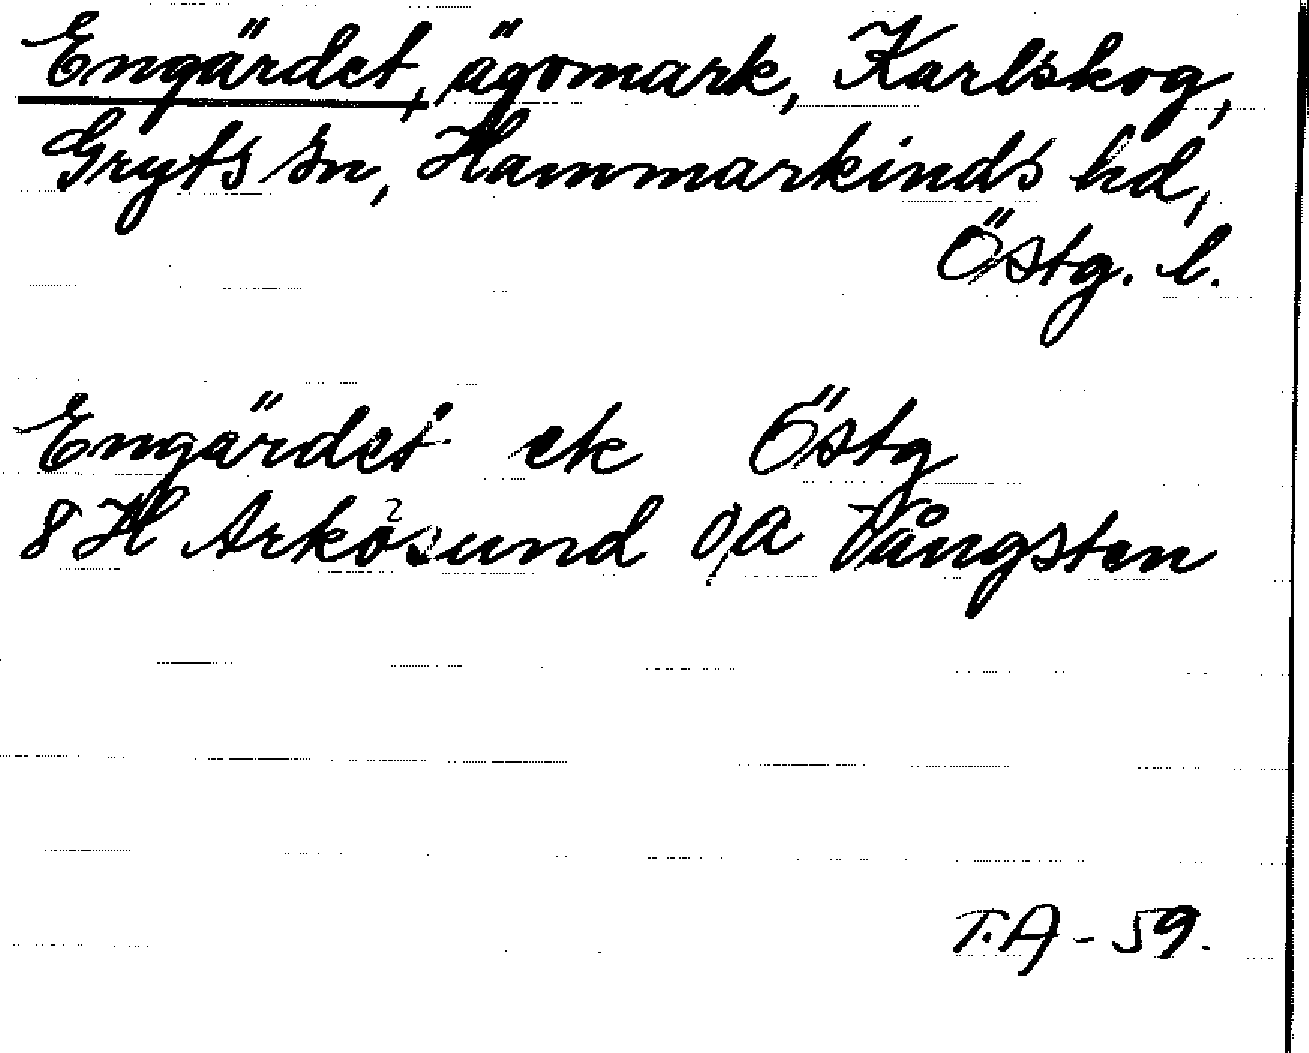 Engärdet, ägomark, Karlskog,
Gryts sn, Hammarkinds hd,
Östg. l.
Engärdet ek Östg
8 H Arkösund 0/a Vångsten
T.A - 59.